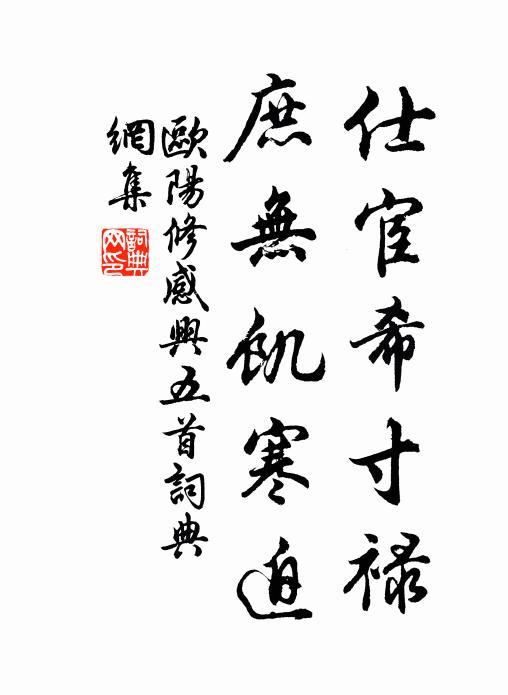 仕宦希寸祿
庶無飢寒迫
歐陽修感興五首詞典
網集
詞典
网印